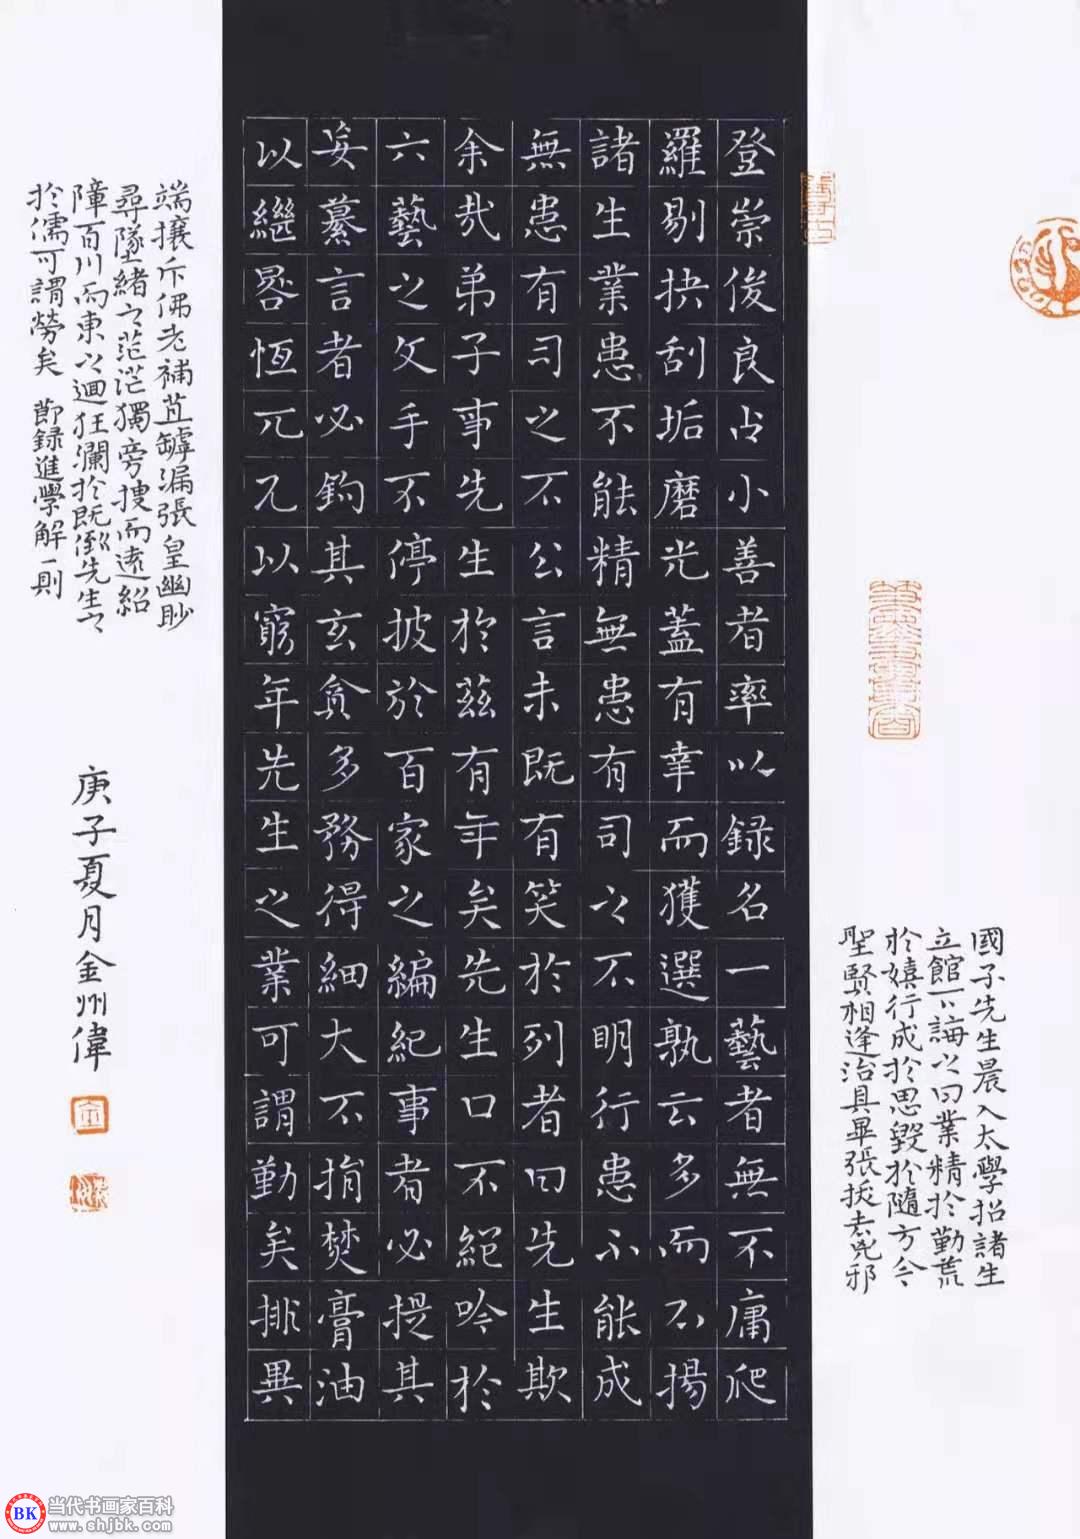 國子先生晨入太學招諸生
立館下誨之曰業精於勤荒
於嬉行成於思毀於隨方今
聖賢相逢治具畢張拔去兇邪
登崇俊良占小善者率以録名一藝者無不庸爬
羅剔抉刮垢磨光蓋有幸而獲選孰云多而不揚
諸生業患不能精無患有司之不明行患不能成
無患有司之不公言未既有笑於列者曰先生欺
余哉弟子事先生於茲有年矣先生口不絕吟於
六藝之文手不停披於百家之編紀事者必提其
要纂言者必鈎其玄貪多務得細大不捐焚膏油
以繼晷恆兀兀以窮年先生之業可謂勤矣排異
端攘斥佛老補苴罅漏張皇幽眇
尋墜緒之茫茫獨旁搜而遠紹
障百川而東之迴狂瀾於既倒先生之
於儒可謂勞矣 節録進學解一則
庚子夏月金州偉
BK
当代书画家百科
www.shjbk.com